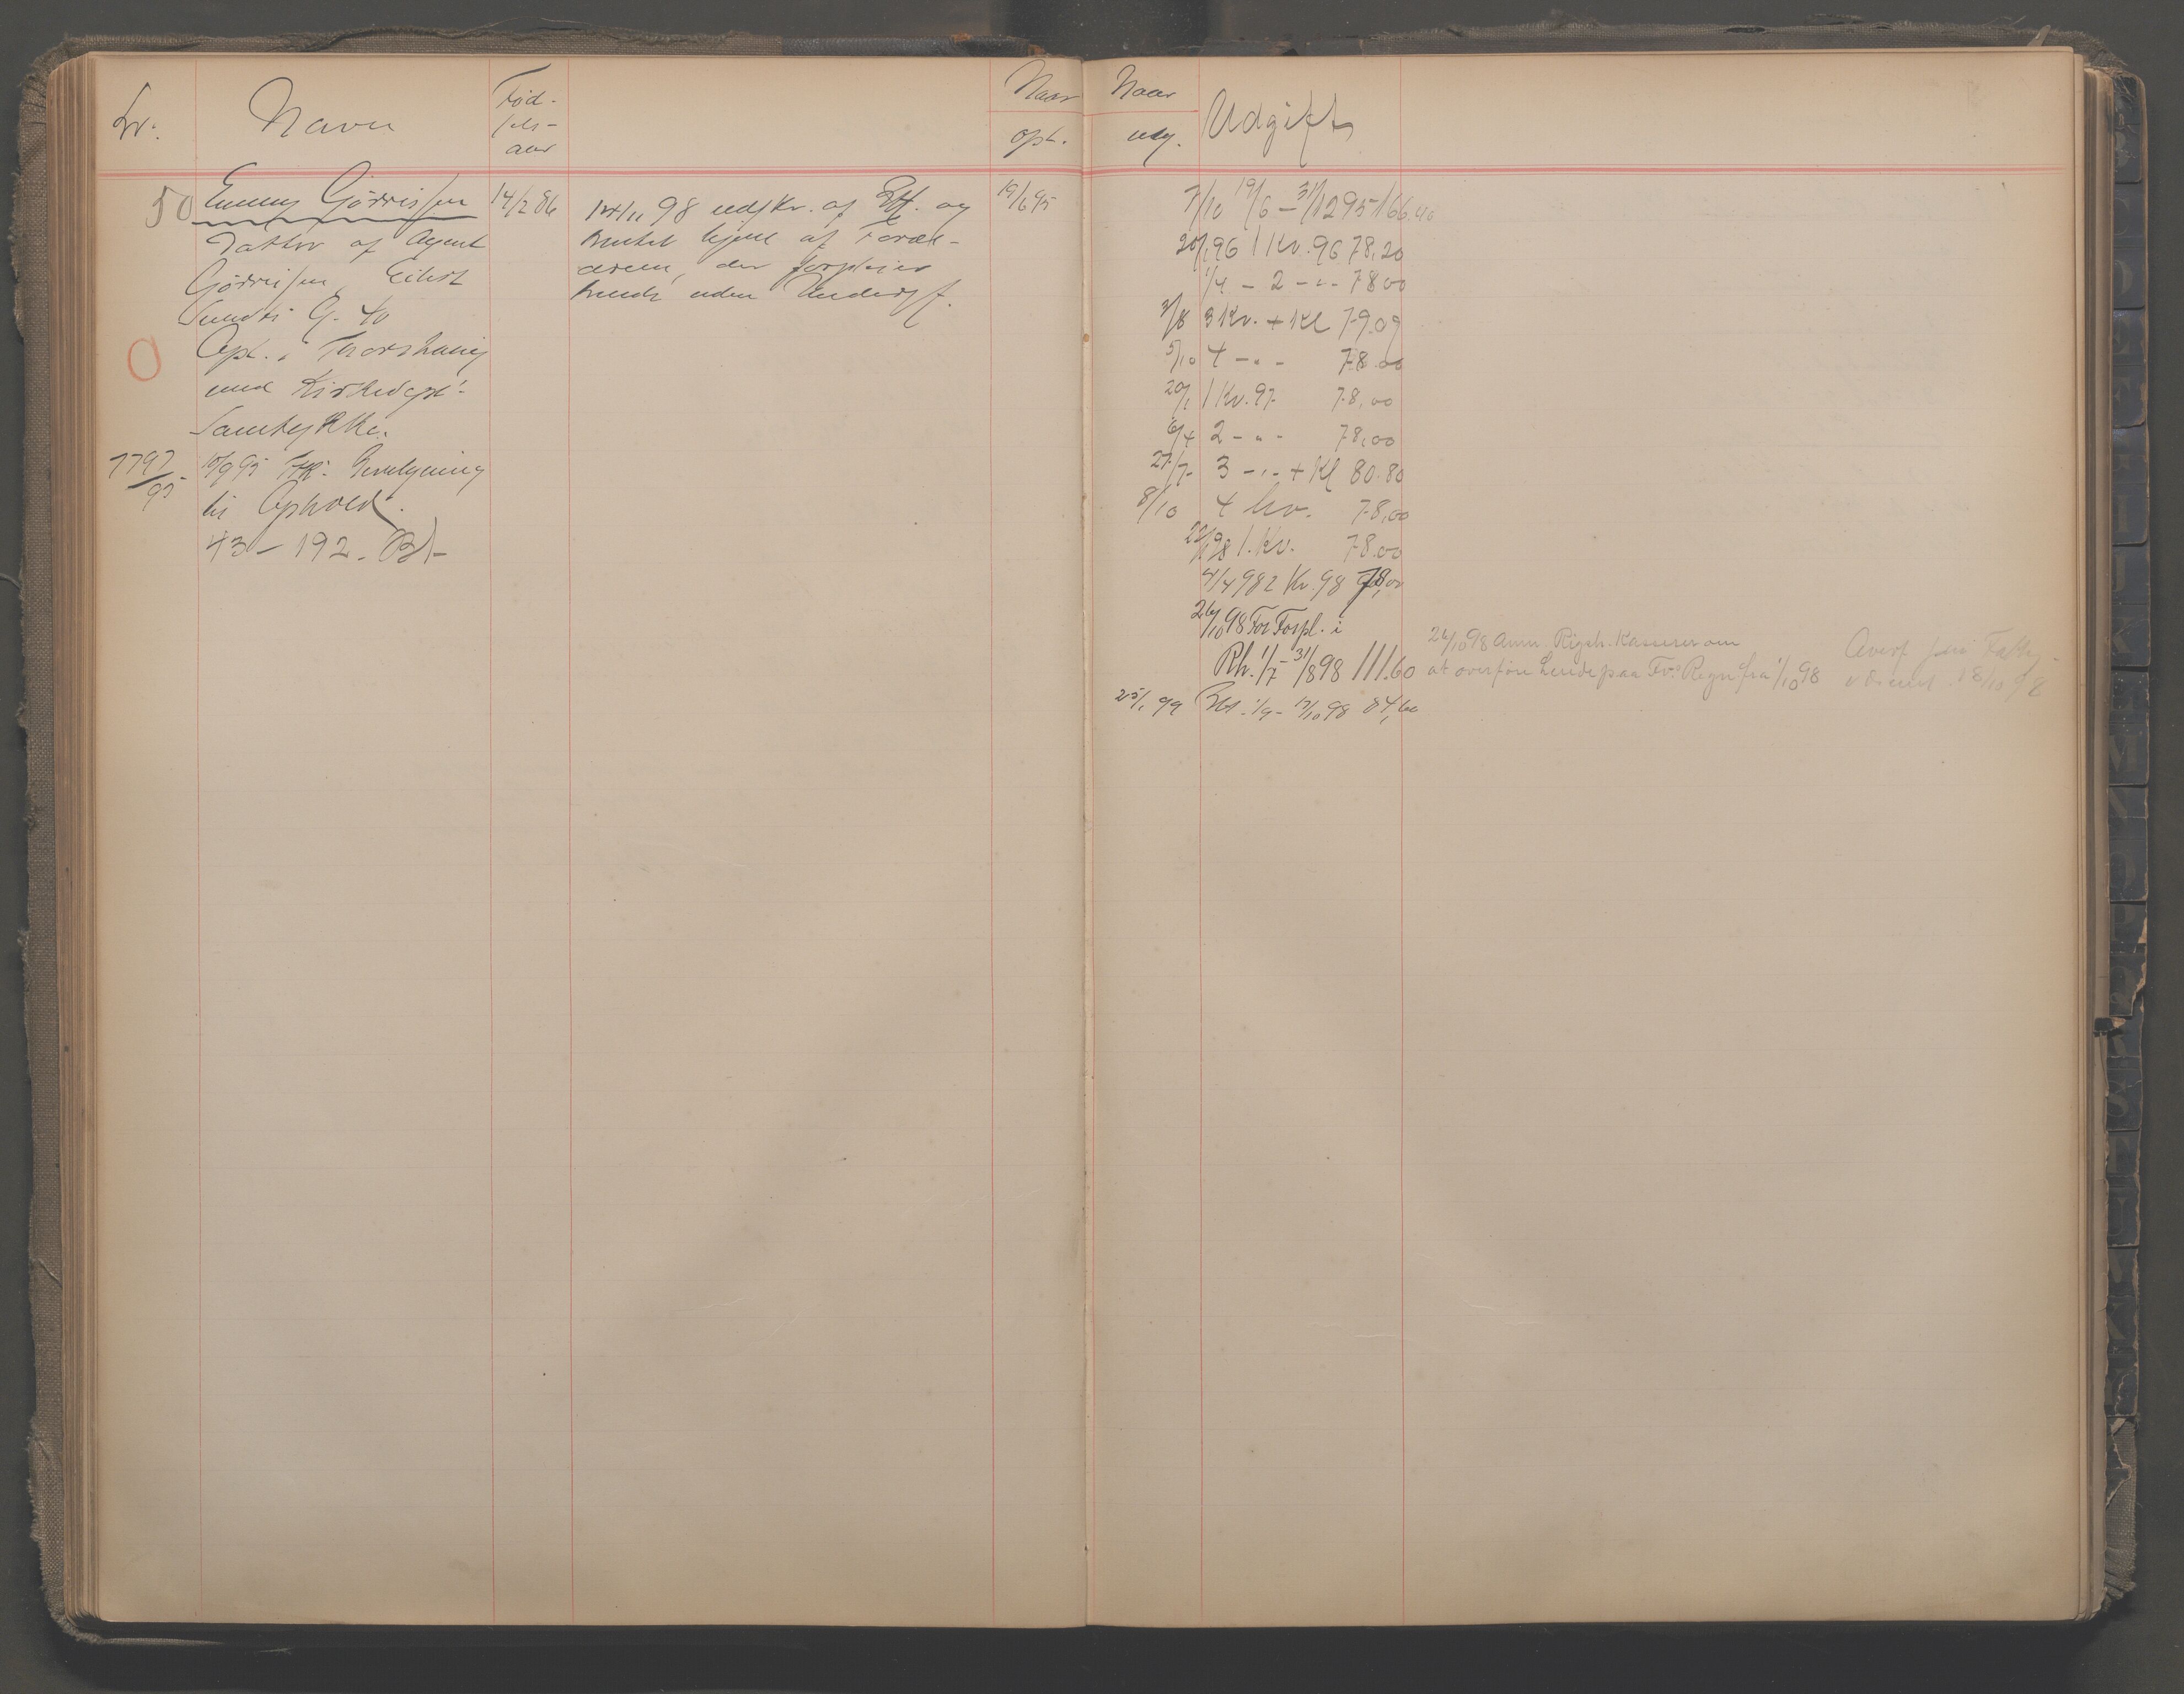 Nr.
Navn
Fød-
sels-
aar
Naar
opt.
Naar
udg.
Udgift
50
Emmy Görrissen
14/2 86
Datter af Agent
Görrissen, Eilert
Sundts G. 40
Opt. i Thorshaug
med Kirkedept.
Samtykke.
7797/95
10/9 95 Bevilgning
til Ophold.
43 - 192.
14/11 98 udskr. af og
hentet hjem af Foræl-
drene, der forpleier
hende uden Underst.
19/6 95
7/10 19/6 - 31/12 95 166.40
20/1 96 1 Kv. 96 78,20
1/4 - 2 - " - 78 00
3/8 3 Kv. + Kl 79.09
5/10 4 - " - 78.00
20/1 1 Kv. 97. 78,00
6/4 2 - " - 78,00
27/7 3 - " - + Kl 80.80
8/10 4 Kv. 78,00
22/1 98 1. Kv. 78.00
4/4 98 2 Kv. 98 78,00
26/10 98 For Forpl. i
Rh. 1/7 - 31/8 98 111.60
26/10 98 Anm. Rigsh. Kasserer om
at overføre hende paa Fv.s Regn. fra 1/10 98
Overf. fra
18/10 98
25/1 99 1/9 - 17/10 98 84,60